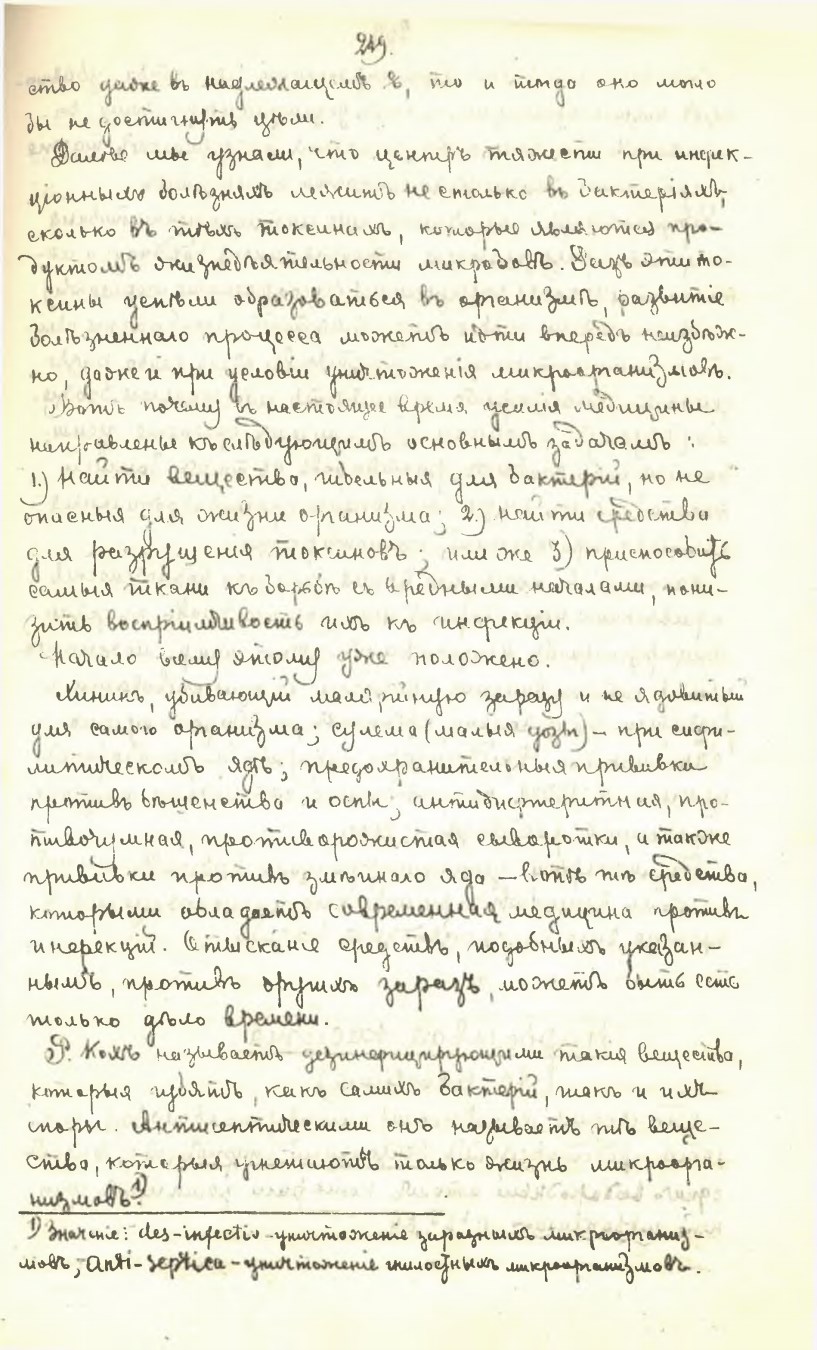 249.
ство даже въ надлежащемъ %, то и тогда оно могло
бы не достигнуть цѣли.
Далѣе мы узнали, что центръ тяжести при инфек-
ціонныхъ болѣзняхъ лежитъ не столько въ бактеріяхъ,
сколько въ тѣхъ токсинахъ, которые являются про-
дуктомъ жизнедѣятельности микробовъ. Разъ эти то-
ксины успѣли образоваться въ организмѣ, развитіе
болѣзненнаго процесса можетъ идти впередъ неизбѣж-
но, даже и при условіи уничтоженія микроорганизмовъ.
Вотъ почему въ настоящее время усилія медицины
направлены къ слѣдующимъ основнымъ задачамъ:
1.) Найти вещества, гибельныя для бактерій, но не
опасныя для жизни организма; 2.) найти средства
для разрушенія токсиновъ; или же 3) приспособить
самыя ткани къ борьбѣ съ вредными началами, пони-
зить воспріимчивость ихъ къ инфекціи.
Начало всему этому уже положено.
Хининъ, убивающій малярійную заразу и не ядовитый
для самого организма; сулема (малыя дозы) – при сифи-
литическомъ ядѣ; предохранительныя прививки
противъ бѣшенства и оспы; антидифтеритная, про-
тивочумная, противорожистая сыворотки, а также
прививки противъ змѣинаго яда – вотъ тѣ средства,
которыми обладаетъ современная медицина противъ
инфекцій. Отысканіе средствъ, подобныхъ указан-
нымъ, противъ другихъ заразъ, можетъ быть есть
только дѣло времени.
Р. Кохъ называетъ дезинфицирующими такія вещества,
которыя губятъ, какъ самихъ бактерій, такъ и ихъ
споры. Антисептическими онъ называетъ тѣ веще-
ства, которыя угнетаютъ только жизнь микроорга-
низмовъ. 1)
1) Значеніе: des-infectio - уничтоженіе заразныхъ микроорганиз-
мовъ; Anti-septica - уничтоженіе гнилостныхъ микроорганизмовъ.